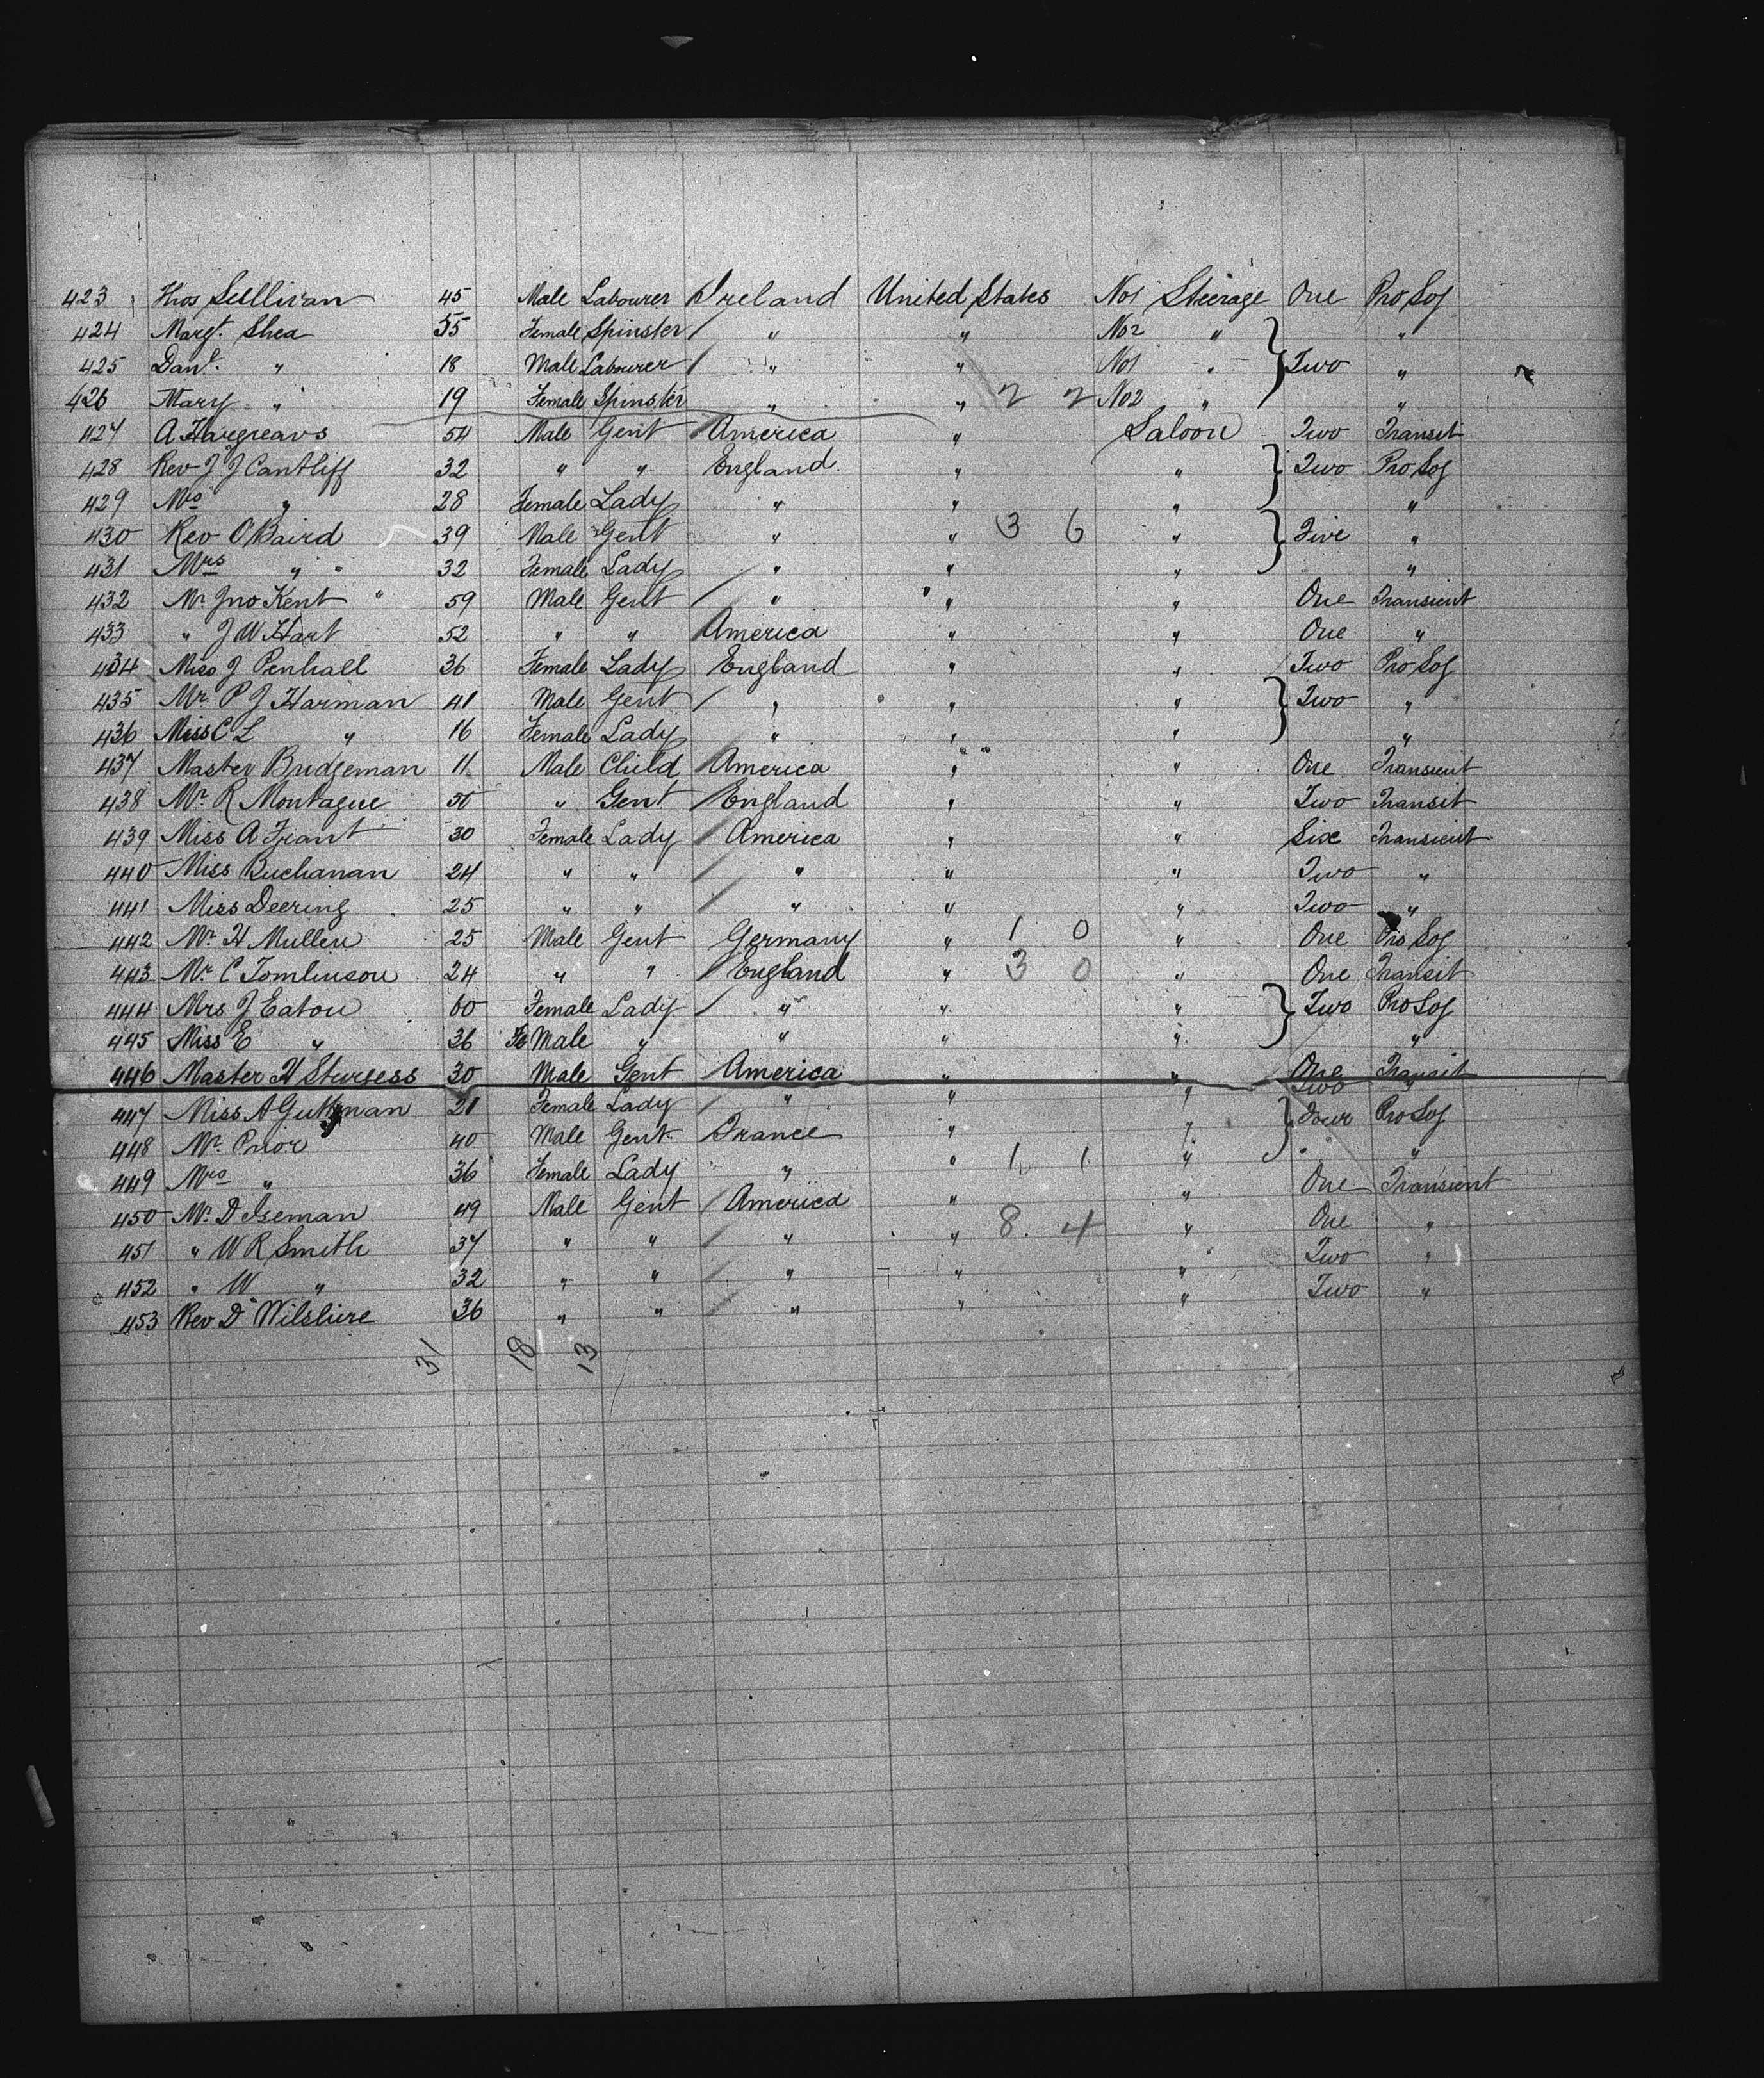 423 Thos Sullivan 45 Male Labourer Ireland United States No1 Steerage One Pro Soj
424 Margt. Shea 55 Female Spinster " " No2 " "
425 Danl. " 18 Male Labourer " " No1 " Two "
426 Mary " 19 Female Spinster " " 2 2 No2 " "
427 A Hargreavs 54 Male Gent America " Saloon Two Transit
428 Rev J J Cantliff 32 " " England " " Two Pro Soj
429 Mrs " 28 Female Lady " " " "
430 Rev O Baird 39 Male Gent " " 3 6 " Five "
431 Mrs " " 32 Female Lady " " " "
432 Mr Jno Kent 59 Male Gent " " " One Transient
433 " J W Hart 52 " " America " " One "
434 Miss J Penhall 36 Female Lady England " " Two Pro Soj
435 Mr P J Harman 41 Male Gent " " " Two "
436 Miss C L " 16 Female Lady " " " "
437 Master Bridgeman 11 Male Child America " " One Transient
438 Mr R Montague 50 " Gent England " " Two Transit
439 Miss A Frant 30 Female Lady America " " Six Transient
440 Miss Buchanan 24 " " " " " Two "
441 Miss Deering 25 " " " " " Two "
442 Mr H Mullen 25 Male Gent Germany " 1 0 " One Pro Soj
443 Mr C Tomlinson 24 " " England " 3 0 " One Transit
444 Mrs J Eaton 60 Female Lady " " " Two Pro Soj
445 Miss E " 36 Fe Male " " " " "
446 Master H Sturgess 30 Male Gent America " " One Transit
447 Miss A Gutman 21 Female Lady " " " Two "
448 Mr Prior 40 Male Gent France " " Four Pro Soj
449 Mrs " 36 Female Lady " " 1 1 " "
450 Mr D Iseman 49 Male Gent America " " One Transient
451 " W R Smith 37 " " " " 8 4 " One "
452 " W " 32 " " " " " Two "
453 Rev D Wilshire 36 " " " " " Two "
31 18 13